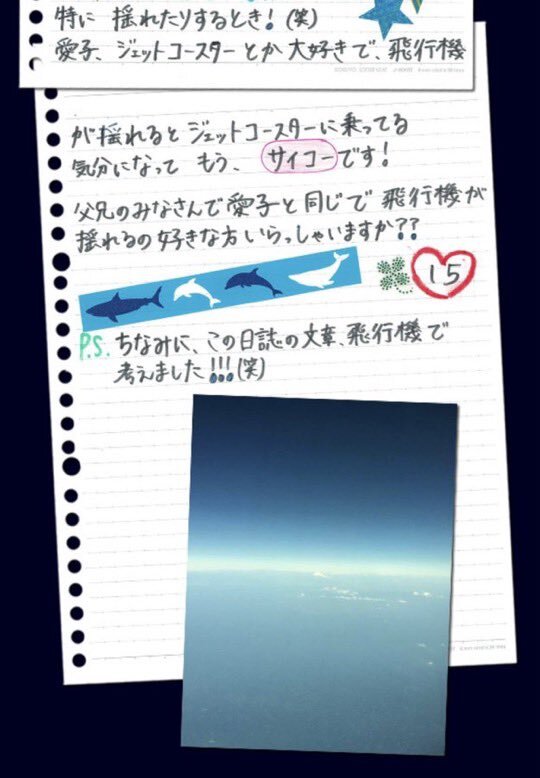 特に 揺れたりするとき！(笑)
愛子、ジェットコースターとか大好きで、飛行機
が揺れるとジェットコースターに乗ってる
気分になって もう、サイコーです！
父兄のみなさんで愛子と同じで飛行機が
揺れるの好きな方いらっしゃいますか??
15
P.S. ちなみに、この日誌の文章、飛行機で
考えました!!!(笑)